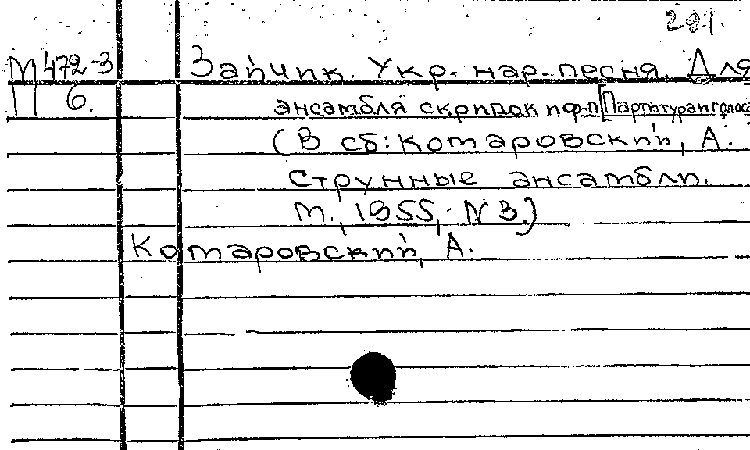 201.
М 472-3 Зайчик. Укр. нар. песня. Для
П 6. ансамбля скрипок и ф-п [Партитура и голоса
(В сб: Комаровский, А.
Струнные ансамбли.
М., 1955, N 3.)
Комаровский, А.